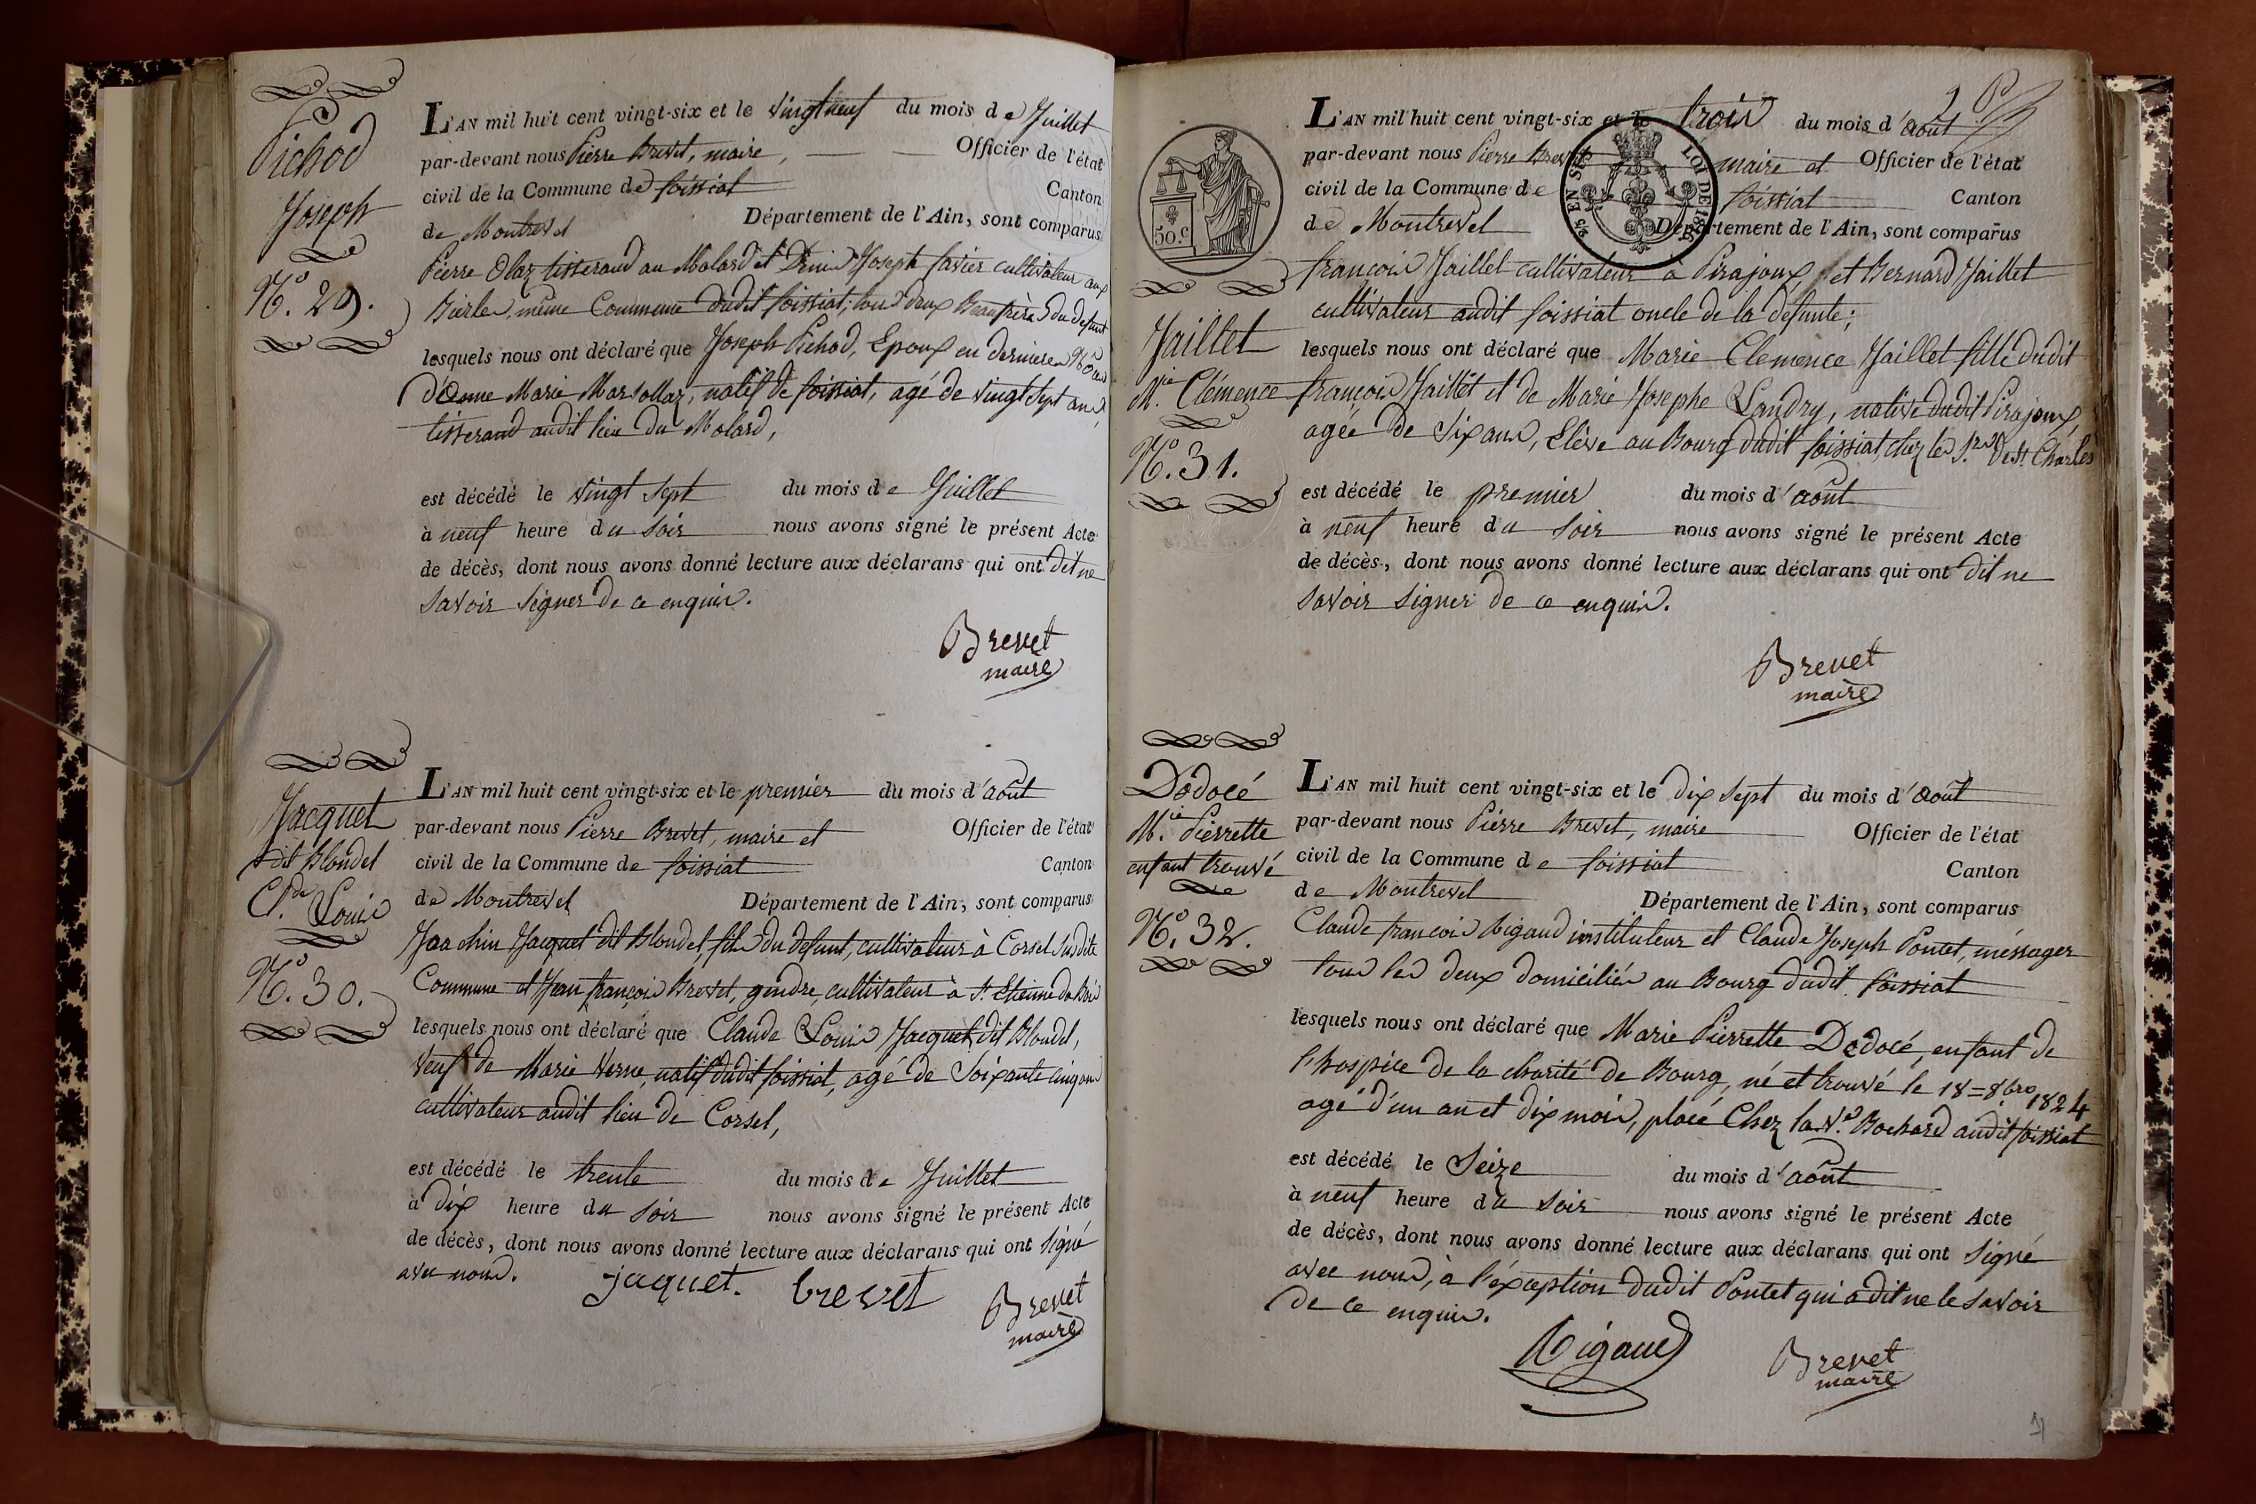 Pichod
Joseph
N.º 29.
L'AN mil huit cent vingt-six et le vingt neuf du mois de Juillet
par-devant nous Pierre Brevet, maire, Officier de l'état
civil de la Commune de foissiat Canton
de Montrevel Département de l'Ain, sont comparus
Pierre Olaz tisserand au Molard et Denis Joseph favier cultivateur aux
même Commune dudit foissiat, tous deux Beaufrères du defunt
lesquels nous ont déclaré que Joseph Pichod, Epoux en dernieres Nôces
d'Anne Marie Marsollaz, natif de foissiat, agé de vingt Sept ans,
tisserand audit lieu du Molard,
est décédé le vingt sept du mois de Juillet
à neuf heure du soir nous avons signé le présent Acte
de décès, dont nous avons donné lecture aux déclarans qui ont dit ne
savoir signer de ce enquis.
Brevet
maire
Jacquet
dit Blondel
C.de Louis
N.º 30.
L'AN mil huit cent vingt-six et le premier du mois d'août
par-devant nous Pierre Brevet, maire et Officier de l'état
civil de la Commune de foissiat Canton
de Montrevel Département de l'Ain, sont comparus
Joachin Jacquet dit Blondel, fils du defunt, cultivateur à Corsel susdite
Commune et Jean françois Brevet, gendre, cultivateur à S.t Etienne du Bois
lesquels nous ont déclaré que Claude Louis Jacquet dit Blondel,
veuf de Marie Verne, natif dudit foissiat, agé de Soixante cinq ans
cultivateur audit lieu de Corsel,
est décédé le trente du mois de Juillet
à Dix heure du soir nous avons signé le présent Acte
de décès, dont nous avons donné lecture aux déclarans qui ont signé
avec nous.
jaquet. brevet
Brevet
maire
50.c
LOI DE 1816
Jaillet
M.ie Clémence
N.º 31.
L'AN mil huit cent vingt-six et le trois du mois d'août
par-devant nous Pierre Brevet maire et Officier de l'état
civil de la Commune de foissiat Canton
de Montrevel Département de l'Ain, sont comparus
françois Jaillet cultivateur à Pirajoux, et Bernard Jaillet
cultivateur audit foissiat oncle de la defunte;
lesquels nous ont déclaré que Marie Clemence Jaillet fille dudit
françois Jaillet et de Marie Josephe Landry, native dudit Pirajoux,
agée de six ans, Elève au Bourg dudit foissiat, chez les S.rs de S.t Charles
est décédé le premier du mois d'août
à neuf heure du soir nous avons signé le présent Acte
de décès, dont nous avons donné lecture aux déclarans qui ont dit ne
savoir signer de ce enquis.
Brevet
maire
Dodocé
M.ie Pierrette
enfant trouvé
N.º 32.
L'AN mil huit cent vingt-six et le dix sept du mois d'août
par-devant nous Pierre Brevet, maire Officier de l'état
civil de la Commune de foissiat Canton
de Montrevel Département de l'Ain, sont comparus
Claude francois Rigaud instituteur et Claude Joseph Pontet, méssager
tous les deux domiciliés au Bourg dudit foissiat
lesquels nous ont déclaré que Marie Pierrette Dodocé, enfant de
l'hospice de la charité de Bourg, né et trouvé le 18=8bre 1824
agé d'un an et dix mois, placé Chez la V.e Bochard audit foissiat
est décédé le Seize du mois d'août
à neuf heure du soir nous avons signé le présent Acte
de décès, dont nous avons donné lecture aux déclarans qui ont signé
avec nous, à l'éxception dudit Pontet qui a dit ne le savoir
de ce enquis.
Rigaud
Brevet
maire